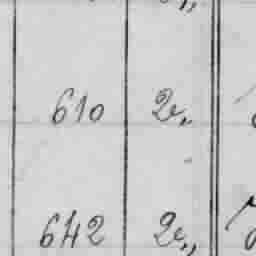 610 2e„
642 2e„